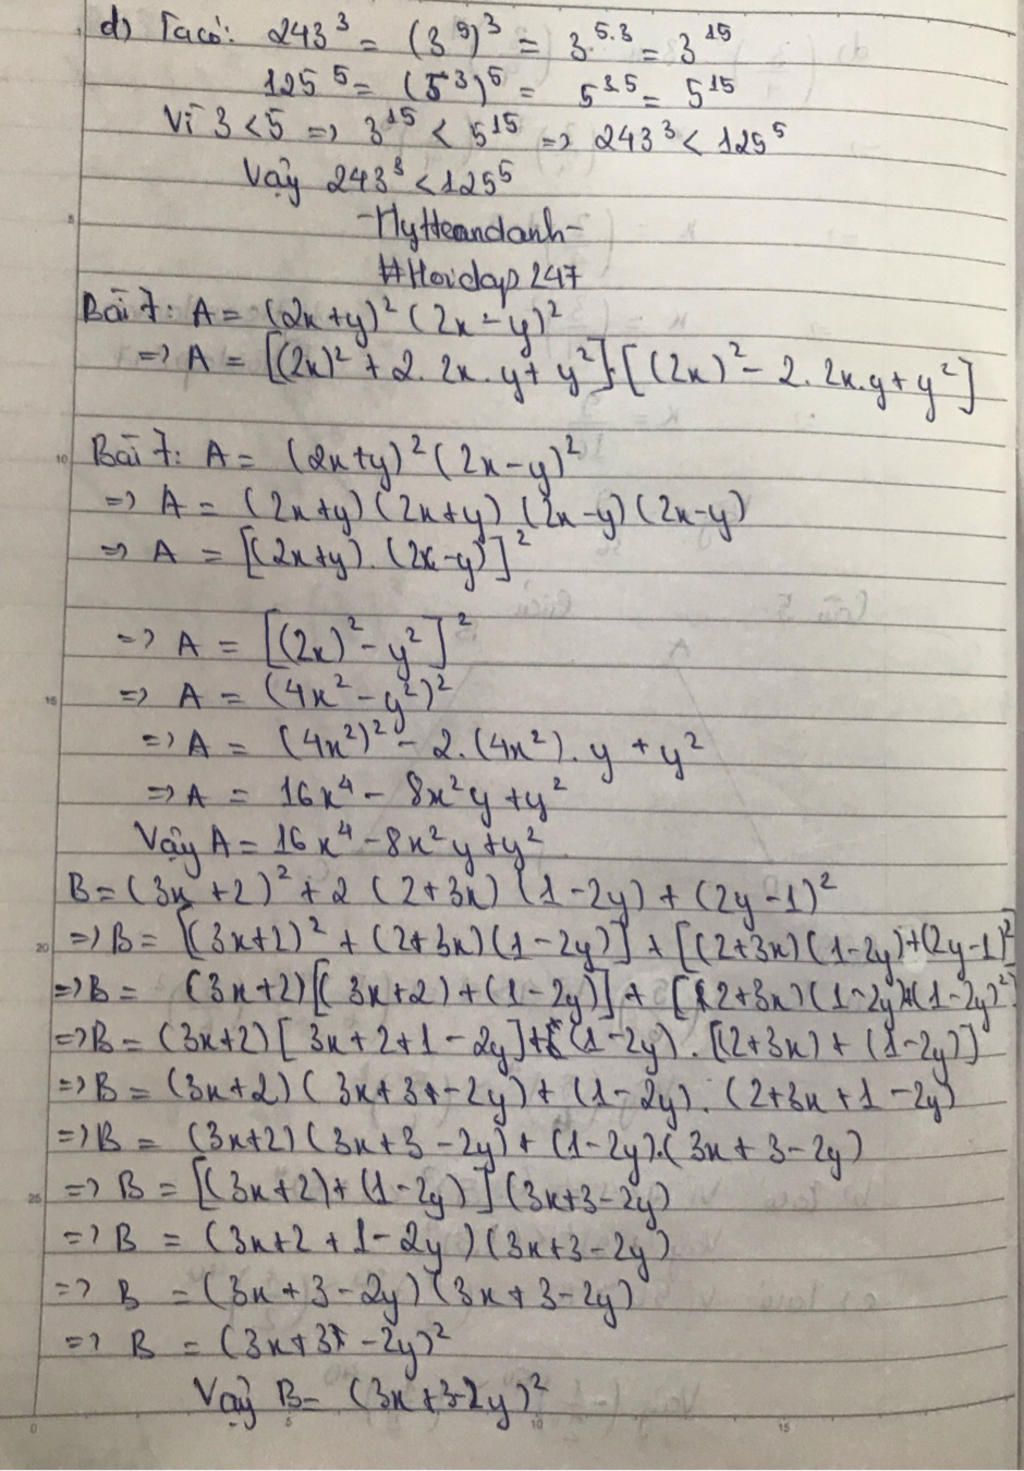 d) Ta có: 243³ = (3⁵)³ = 3^5.3 = 3¹⁵
125⁵ = (5³)⁵ = 5^3.5 = 5¹⁵
Vì 3 < 5 => 3¹⁵ < 5¹⁵ => 243³ < 125⁵
Vậy 243³ < 125⁵
#Hoidap247
Bài 7: A = (2x+y)² (2x-y)²
=> A = [(2x)² + 2.2x.y + y²].[(2x)² - 2.2x.y + y²]
Bài 7: A = (2x+y)² (2x-y)²
=> A = (2x+y)(2x+y)(2x-y)(2x-y)
=> A = [(2x+y).(2x-y)]²
=> A = [(2x)² - y²]²
=> A = (4x² - y²)²
=> A = (4x²)² - 2.(4x²).y + y²
=> A = 16x⁴ - 8x²y + y²
Vậy A = 16x⁴ - 8x²y + y²
B = (3x+2)² + 2(2+3x)(1-2y) + (2y-1)²
=> B = [(3x+2)² + (2+3x)(1-2y)] + [(2+3x)(1-2y)+(2y-1)²
=> B = (3x+2)[(3x+2)+(1-2y)] + [(2+3x)(1-2y)+(1-2y)²
=> B = (3x+2)[3x+2+1-2y]+(1-2y).[(2+3x)+(1-2y)]
=> B = (3x+2)(3x+3-2y)+(1-2y).(2+3x+1-2y)
=> B = (3x+2)(3x+3-2y)+(1-2y).(3x+3-2y)
=> B = [(3x+2)+(1-2y)](3x+3-2y)
=> B = (3x+2+1-2y)(3x+3-2y)
=> B = (3x+3-2y)(3x+3-2y)
=> B = (3x+3-2y)²
Vậy B = (3x+3-2y)²